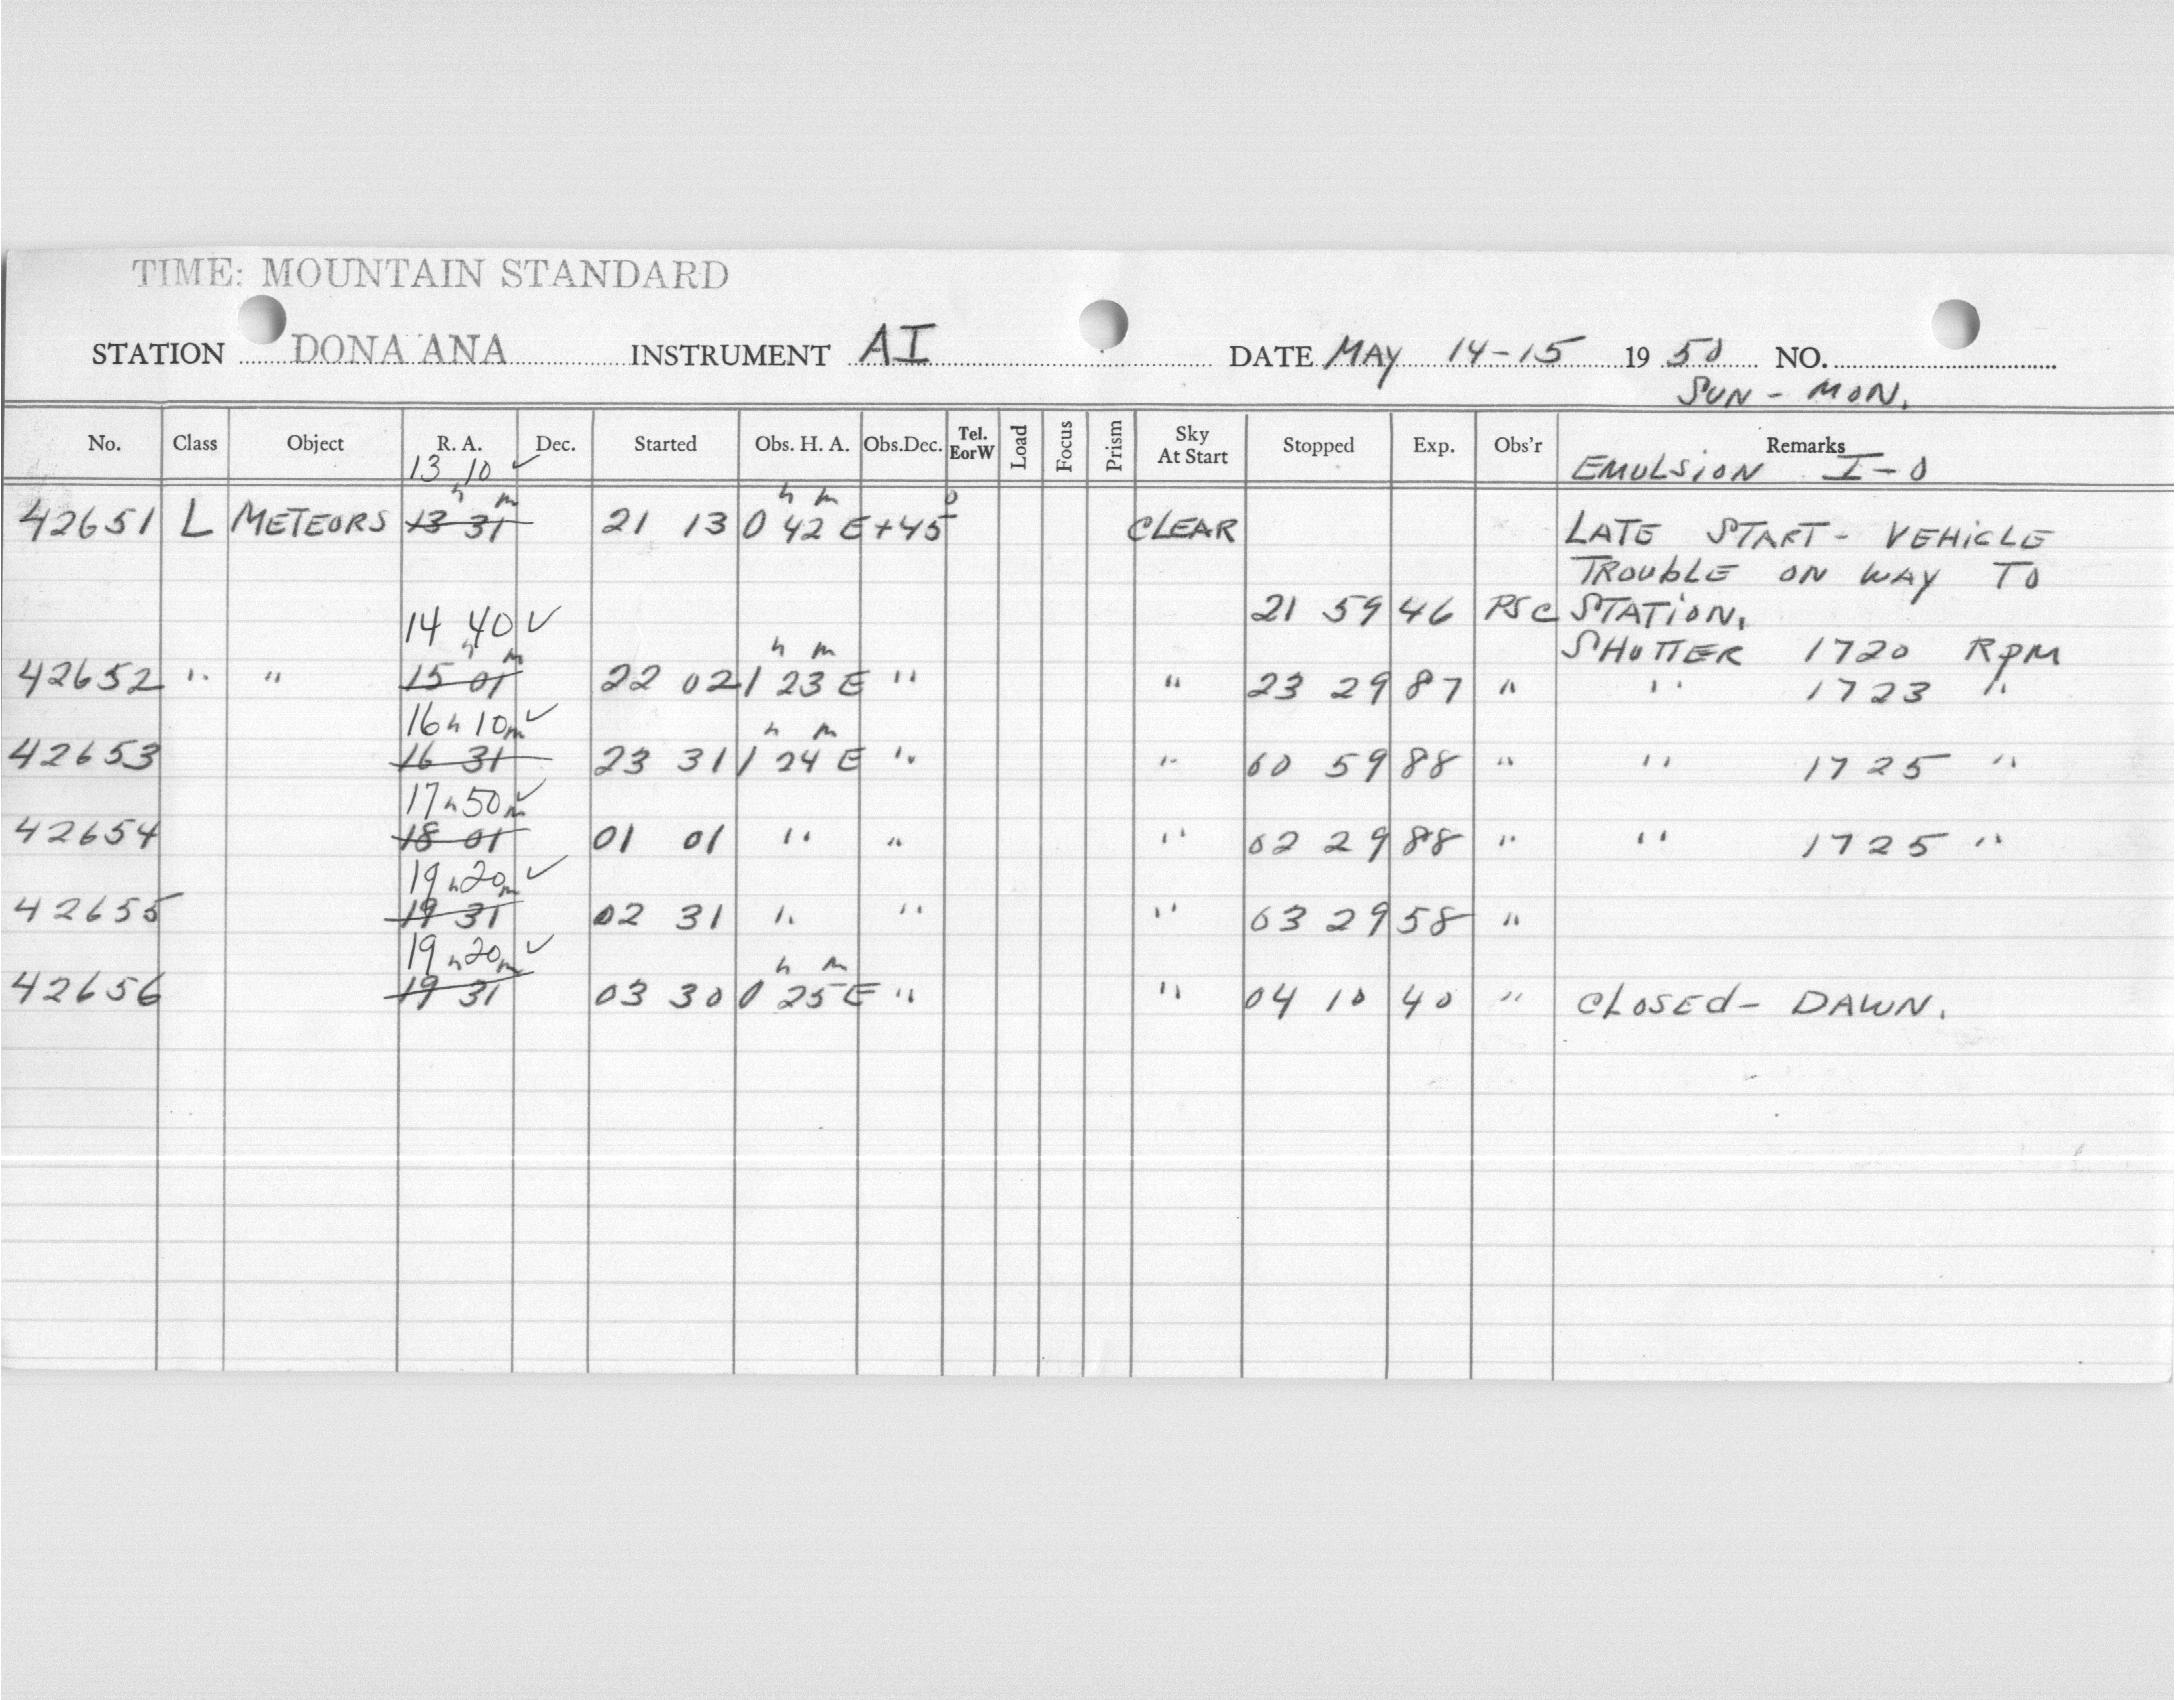 TIME: MOUNTAIN STANDARD
STATION DONA ANA INSTRUMENT AI DATE MAY 14-15 19 50 NO.
SUN - MON.
No. Class Object R. A. Dec. Started Obs. H. A. Obs.Dec. Tel. EorW Load Focus Prism Sky At Start Stopped Exp. Obs'r Remarks
13 10 ✓ EMULSION I-O
42651 L METEORS 13h 31m 21 13 0h 42m E +45° CLEAR LATE START - VEHICLE
TROUBLE ON WAY TO
14 40 ✓ 21 59 46 PSC STATION.
SHUTTER 1720 RPM
42652 " " 15h 01m 22 02 1h 23m E " " 23 29 87 " " 1723 "
16h 10m ✓
42653 16 31 23 31 1h 24m E " " 00 59 88 " " 1725 "
17h 50m ✓
42654 18 01 01 01 " " " 02 29 88 " " 1725 "
19h 20m ✓
42655 19 31 02 31 " " " 03 29 58 "
19h 20m ✓
42656 19 31 03 30 0h 25m E " " 04 10 40 " CLOSED - DAWN.